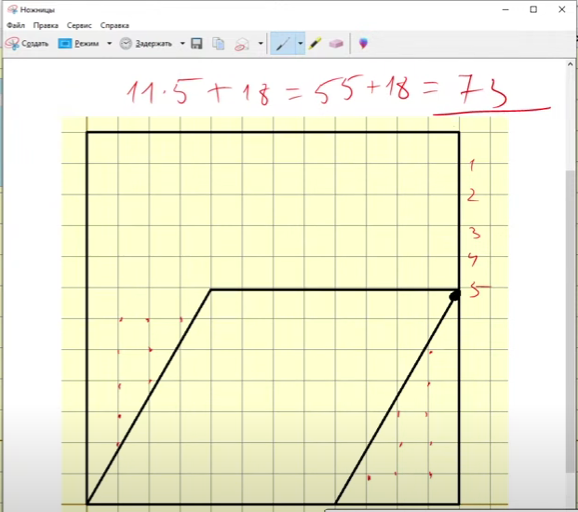 Ножницы
Файл Правка Сервис Справка
Создать Режим Задержать
11·5+18=55+18=73
1
2
3
4
5